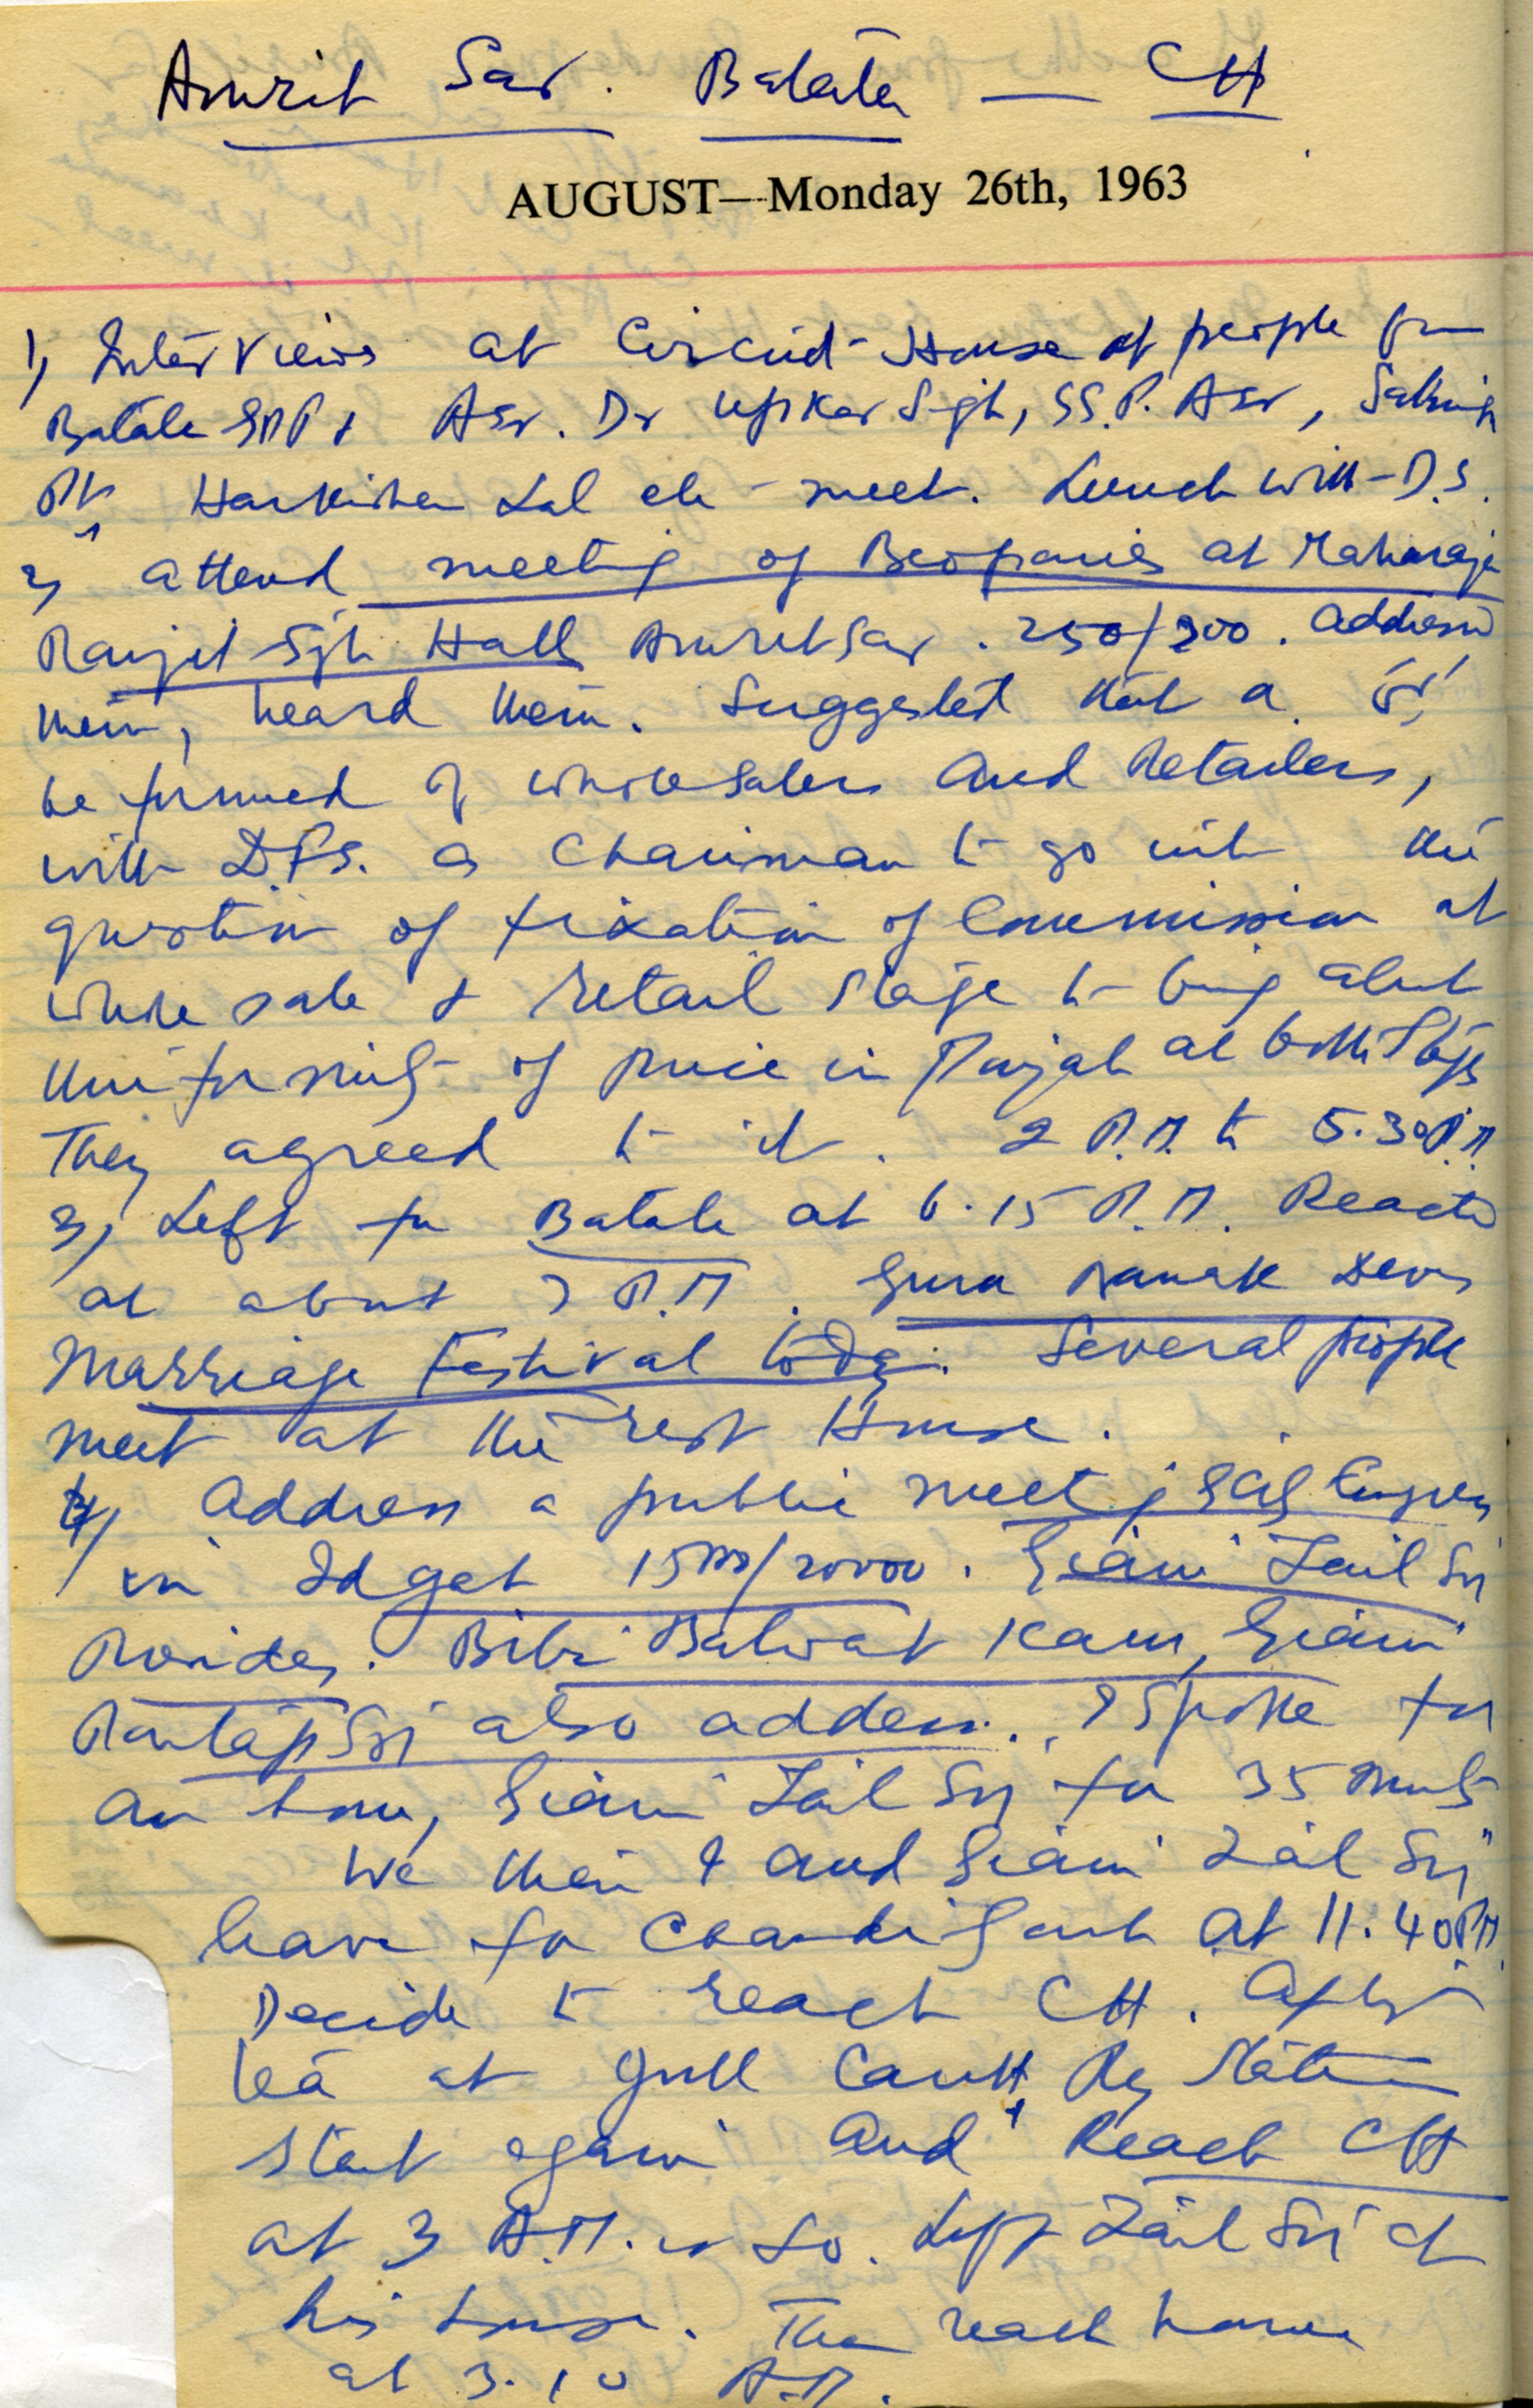 Amrit Sar. Batala — CH
AUGUST—Monday 26th, 1963
1) Interviews at Circuit-House of people from
Batala GDP & Asr. Dr Upkar Sgh, SS.P. Asr,
Pt Harkishen Lal etc - meet. Lunch with D.S.
2) attend meeting of Beoparies at Maharaja
Ranjit Sgh Hall AmritSar. 250/300. address
them, heard them. Suggested that a
be formed of wholesalers and Retailers,
with D.F.S. as Chairman to go into the
question of fixation of Commission at
whole sale & retail stage to bring about
Uniformity of price in Punjab at both Stages
They agreed to it. 2 P.M. to 5.30 P.M.
3) Left for Batala at 6.15 P.M. Reached
at about 7 P.M. Guru Nanak Devs
Marriage Festival today. Several people
meet at the rest House.
4) Address a public meeting
in Idgah 15000/20000. Giani Zail Sgh
Presides. Bibi Balwat Kaur, Giani
Partap Sgh also address. I Spoke for
an hour, Giani Zail Sgh for 35 Mnts
We then I and Giani Zail Sgh
leave for Chandigarh at 11.40 P.M.
Decide to reach CH. After
tea at Jull Cantt Ry Station
start again and Reach CH
at 3 A.M. or so. Left Zail Sgh at
his house. Then reach home
at 3.10 A.M.